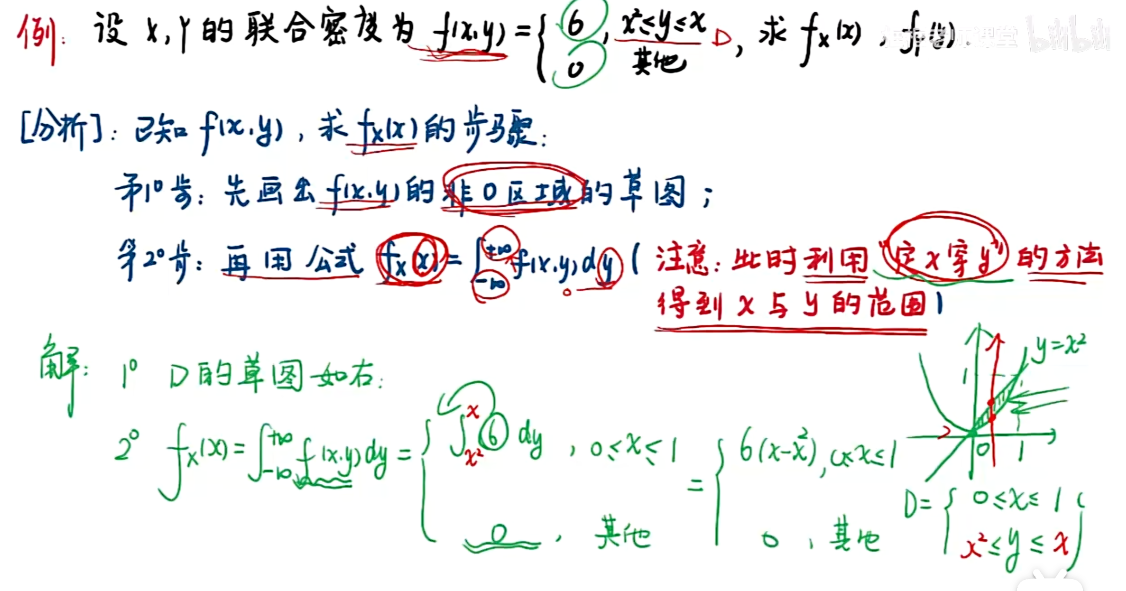 例: 设 X,Y 的联合密度为 f(x,y) = { 6, x²≤y≤x D, 求 f_X(x), f_Y(y).
0 其他
bilibili
[分析]: 已知 f(x,y), 求 f_X(x) 的步骤:
第1°步: 先画出 f(x,y) 的非0区域的草图;
第2°步: 再用公式 f_X(x) = ∫_{-∞}^{+∞} f(x,y)dy ( 注意: 此时利用 "定x穿y" 的方法
得到 x 与 y 的范围)
解: 1° D的草图如右:
2° f_X(x) = ∫_{-∞}^{+∞} f(x,y)dy = { ∫_{x²}^{x} 6 dy, 0≤x≤1
0, 其他
= { 6(x-x²), 0≤x≤1
0, 其他
y=x²
1
0 1
D = { 0≤x≤1
x²≤y≤x